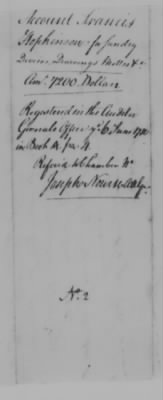 Account Francis
Stephenson for sundry
Devices, Drawings Mottos &c
Amt. 7200 Dollars
Registered in the Auditor
Generals Office ye 6 June 1780
in Book A. fo. 4
Referred to Chamber
Joseph Nourse
No. 2